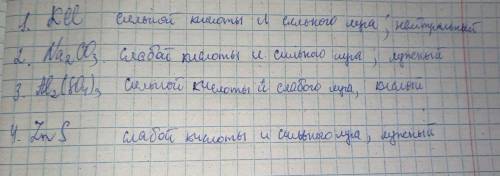 1. KCl сильной кислоты и сильного мра; нейтральный
2. Na2CO3. слабой кислоты и сильного мра, мрежый
3. Al2(SO4)3 сильной кислоты и слабого мра, кислый
4. ZnS слабой кислоты и сильного мра, мрежый